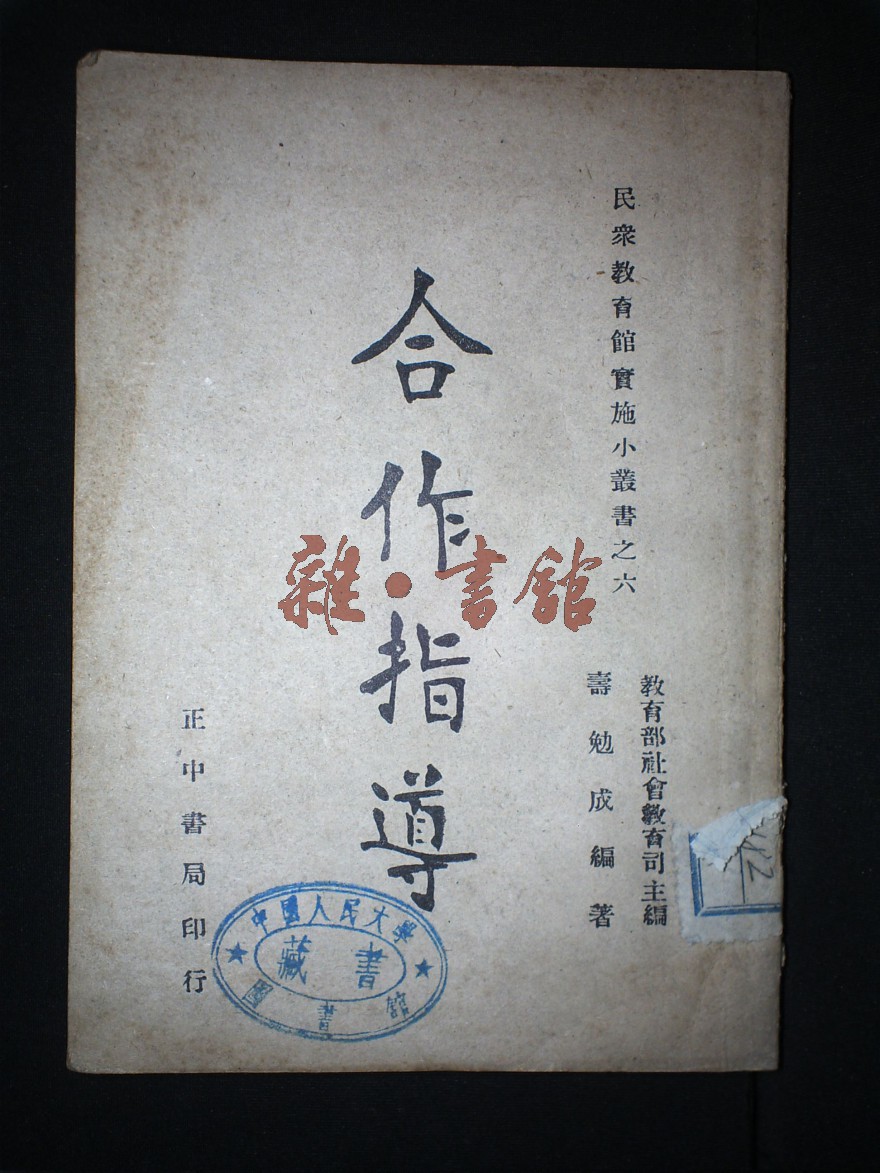 民衆教育館實施小叢書之六
教育部社會教育司主編
壽勉成編著
合作指導
正中書局印行
中國人民大學
圖書館
藏書
雜·書館